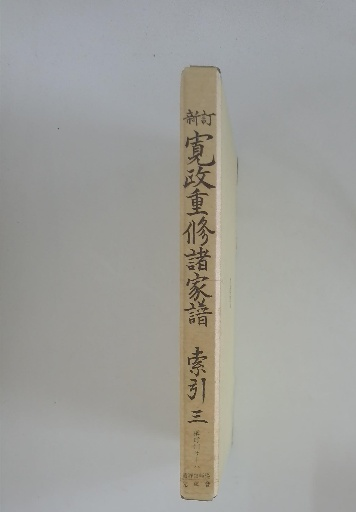 新訂
寛政重修諸家譜
索引三